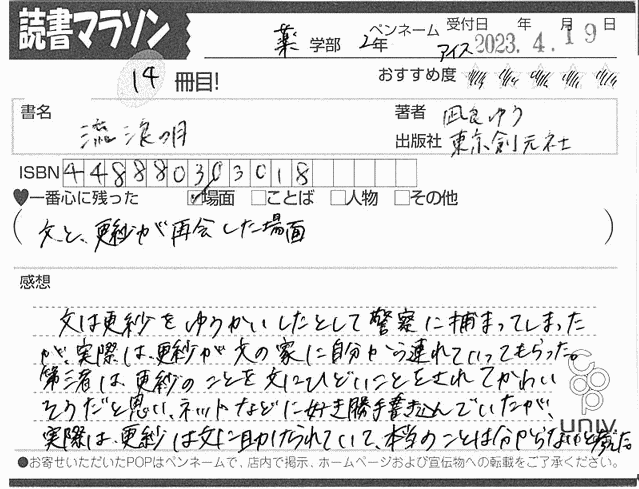 読書マラソン
薬 学部 2年 ペンネーム アイス 受付日 2023.4.19 年 月 日
14 冊目! おすすめ度
書名 流浪の月
著者 凪良ゆう
出版社 東京創元社
ISBN 4488803018
♥一番心に残った 場面 ことば 人物 その他
(文と、更紗が再会した場面)
感想
文は更紗をゆうかいしたとして警察に捕まってしまった
が、実際は、更紗が文の家に自分から連れていってもらった。
第三者は、更紗のことを文にひどいことをされてかわい
そうだと思い、ネットなどに好き勝手書込んでいたが、
実際は、更紗は文に助けられていて、本当のことは分からないなと感じた
univ.
●お寄せいただいたPOPはペンネームで、店内で掲示、ホームページおよび宣伝物への転載をご了承ください。